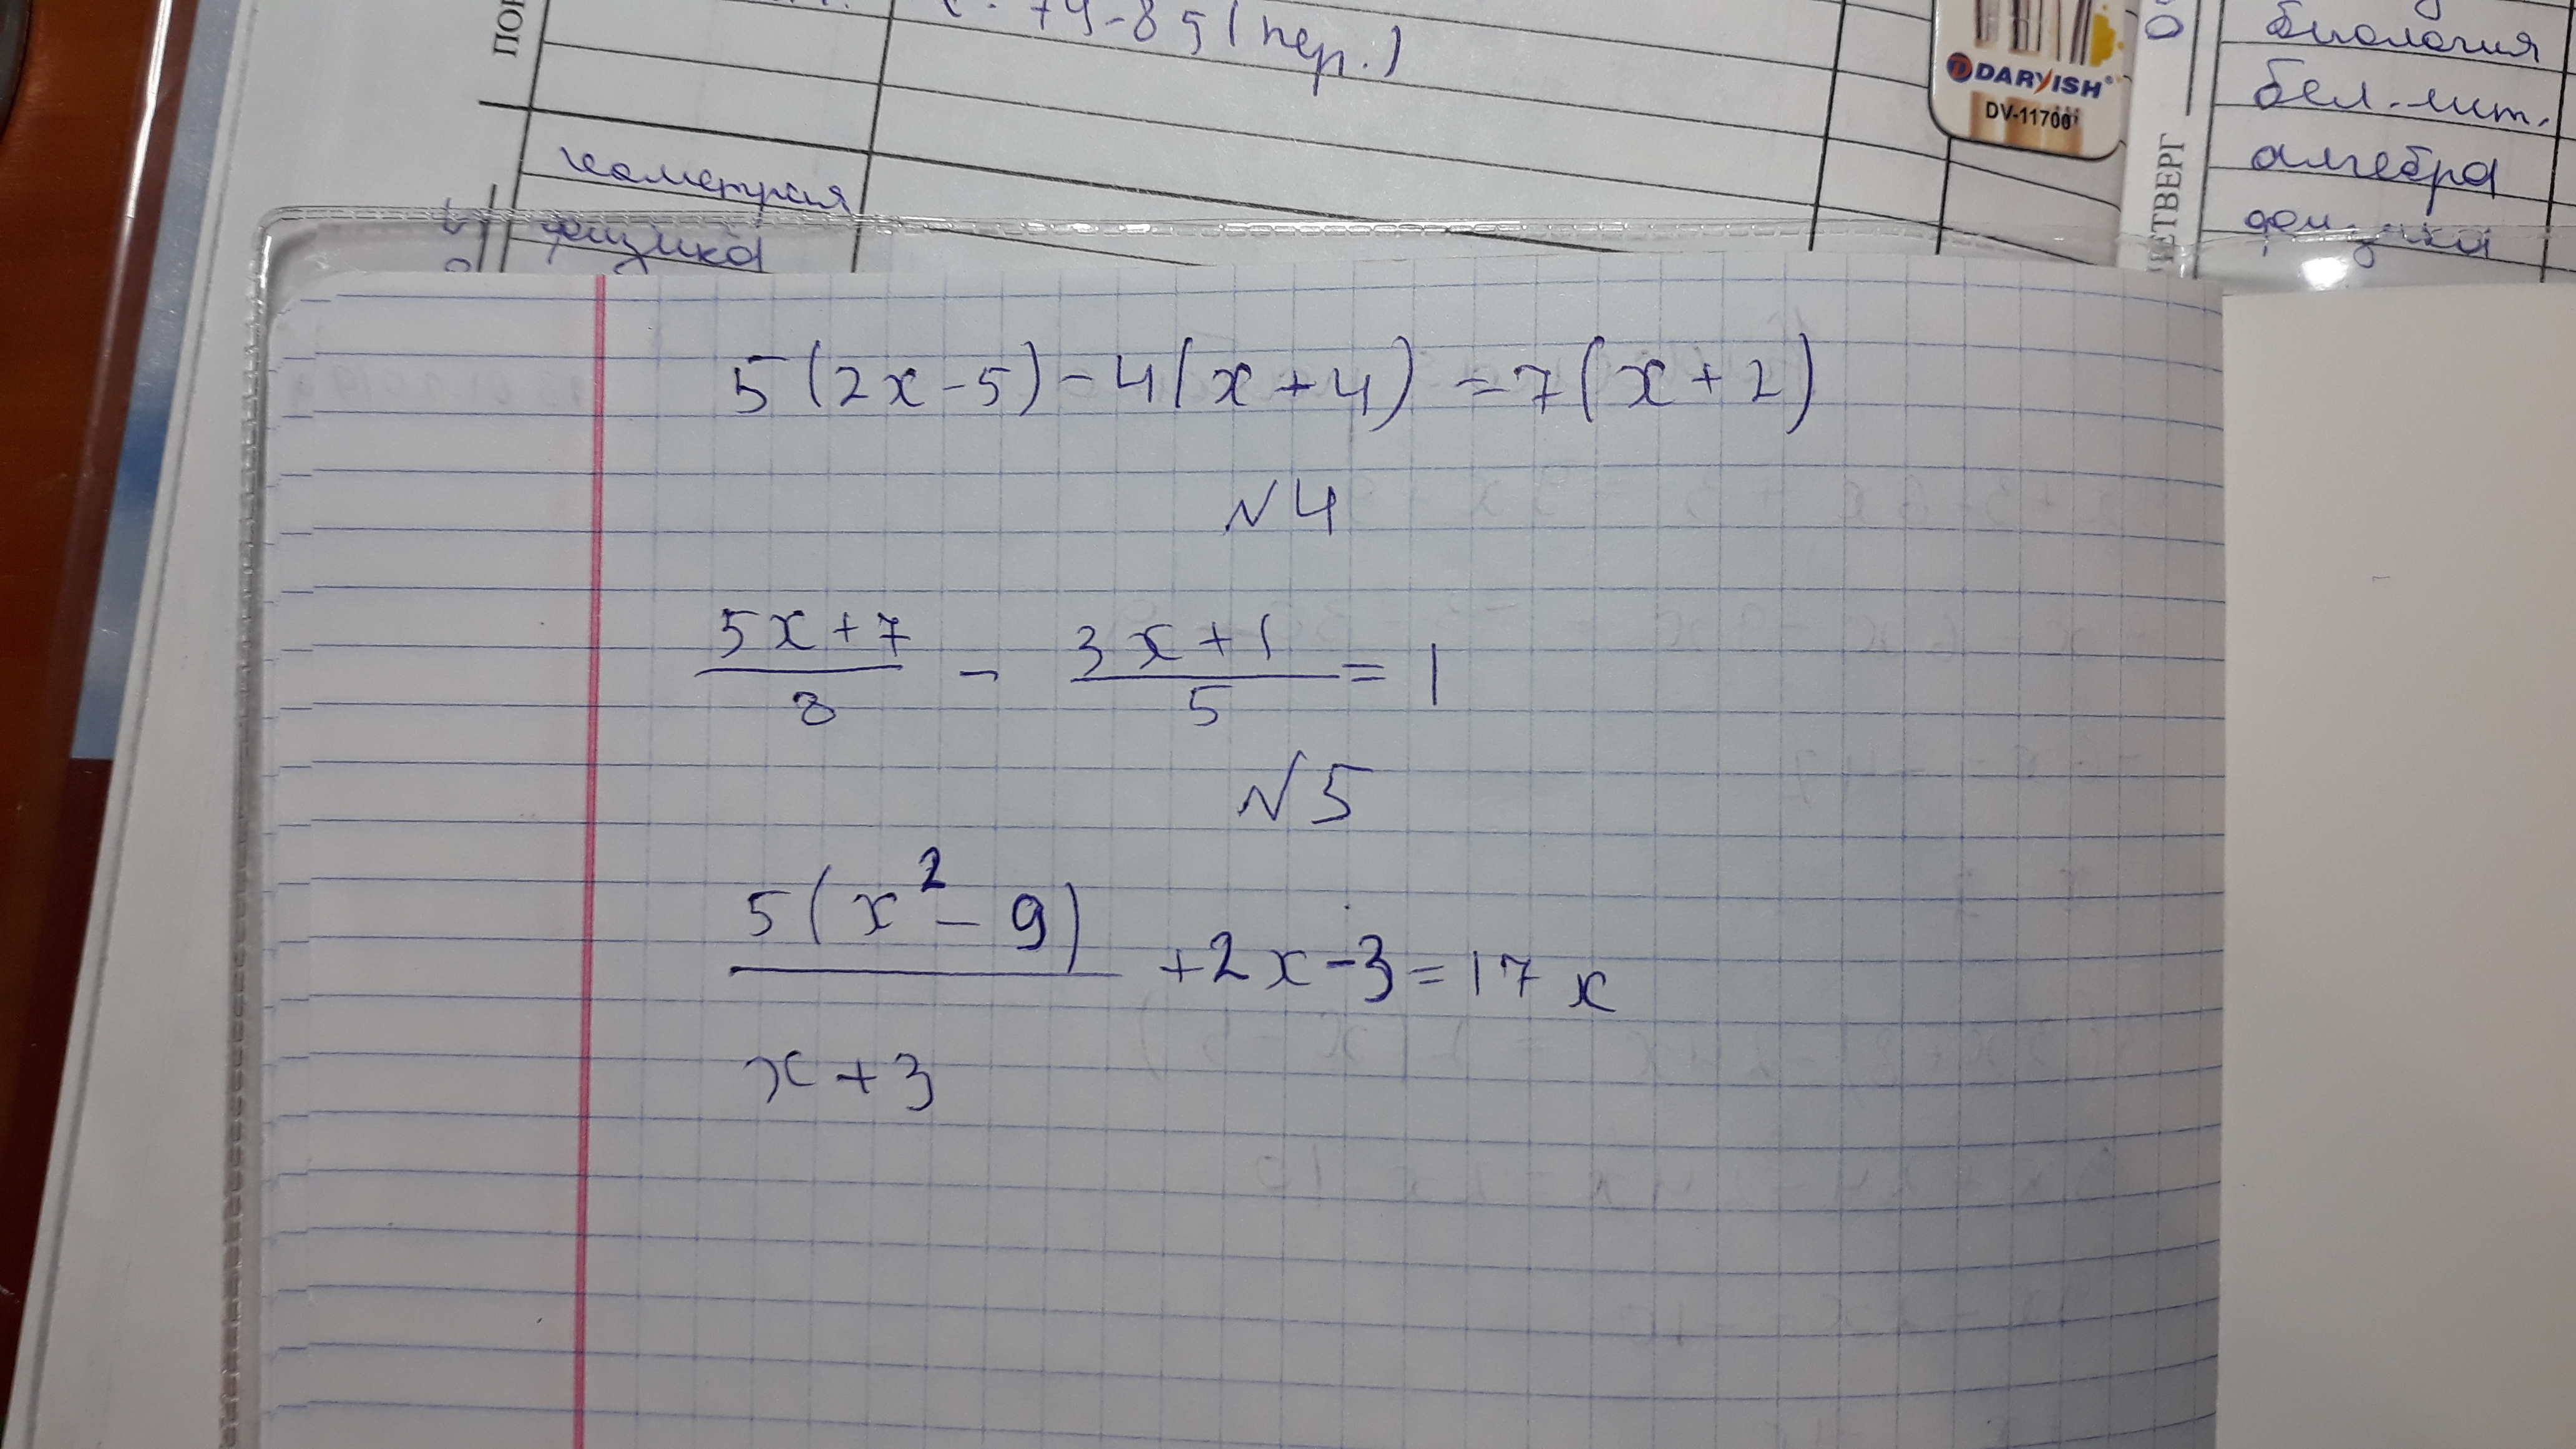 74-85 (пер.)
геометрия
физика
DARVISH
DV-11700
ЧЕТВЕРГ
биология
бел. лит.
алгебра
физика
5(2x-5)-4(x+4)=7(x+2)
№4
5x+7/8 - 3x+1/5 = 1
№5
5(x²-9)/x+3 +2x-3=17x